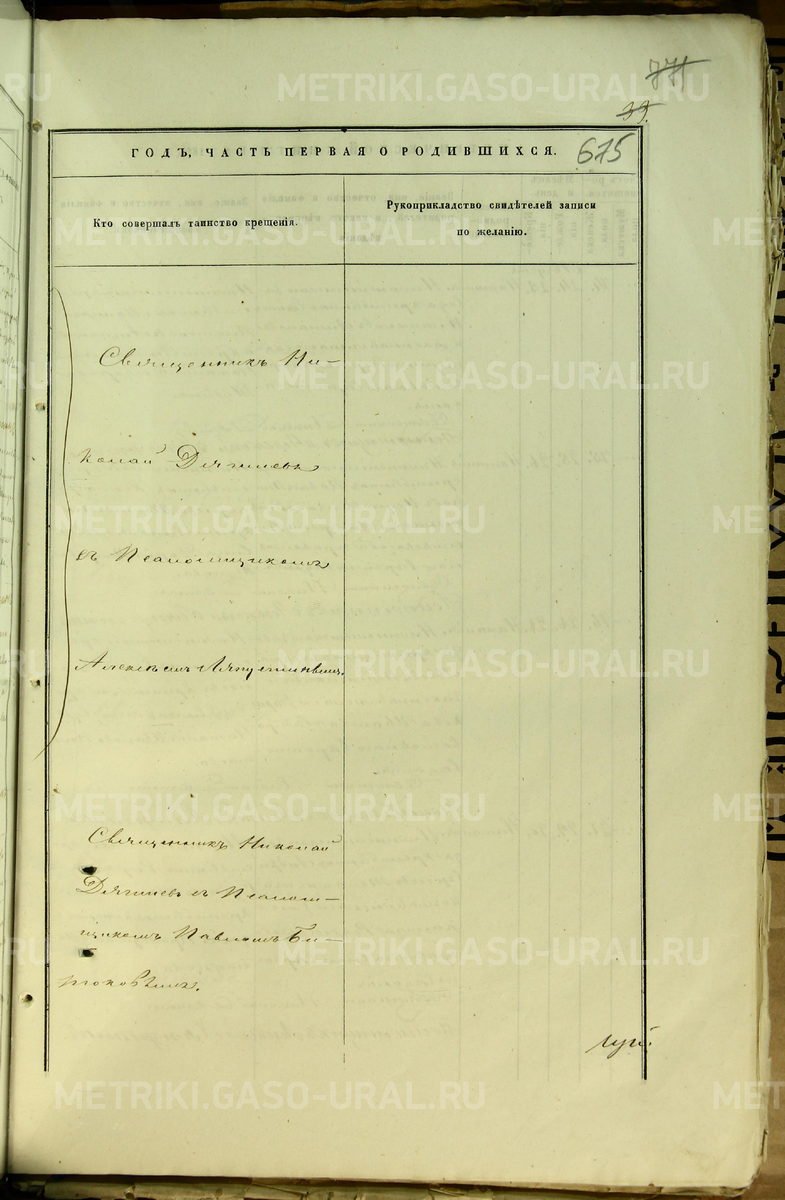 771
33.
ГОДЪ, ЧАСТЬ ПЕРВАЯ О РОДИВШИХСЯ.
675
Кто совершалъ таинство крещенія.
Рукоприкладство свидѣтелей записи
по желанію.
Священникъ Ни-
колай Дягилевъ
съ Псаломщикомъ
Алексѣемъ
Священникъ Николай
Дягилевъ съ Псалом-
щикомъ Павломъ Би-
рюковымъ.
METRIKI.GASO-URAL.RU